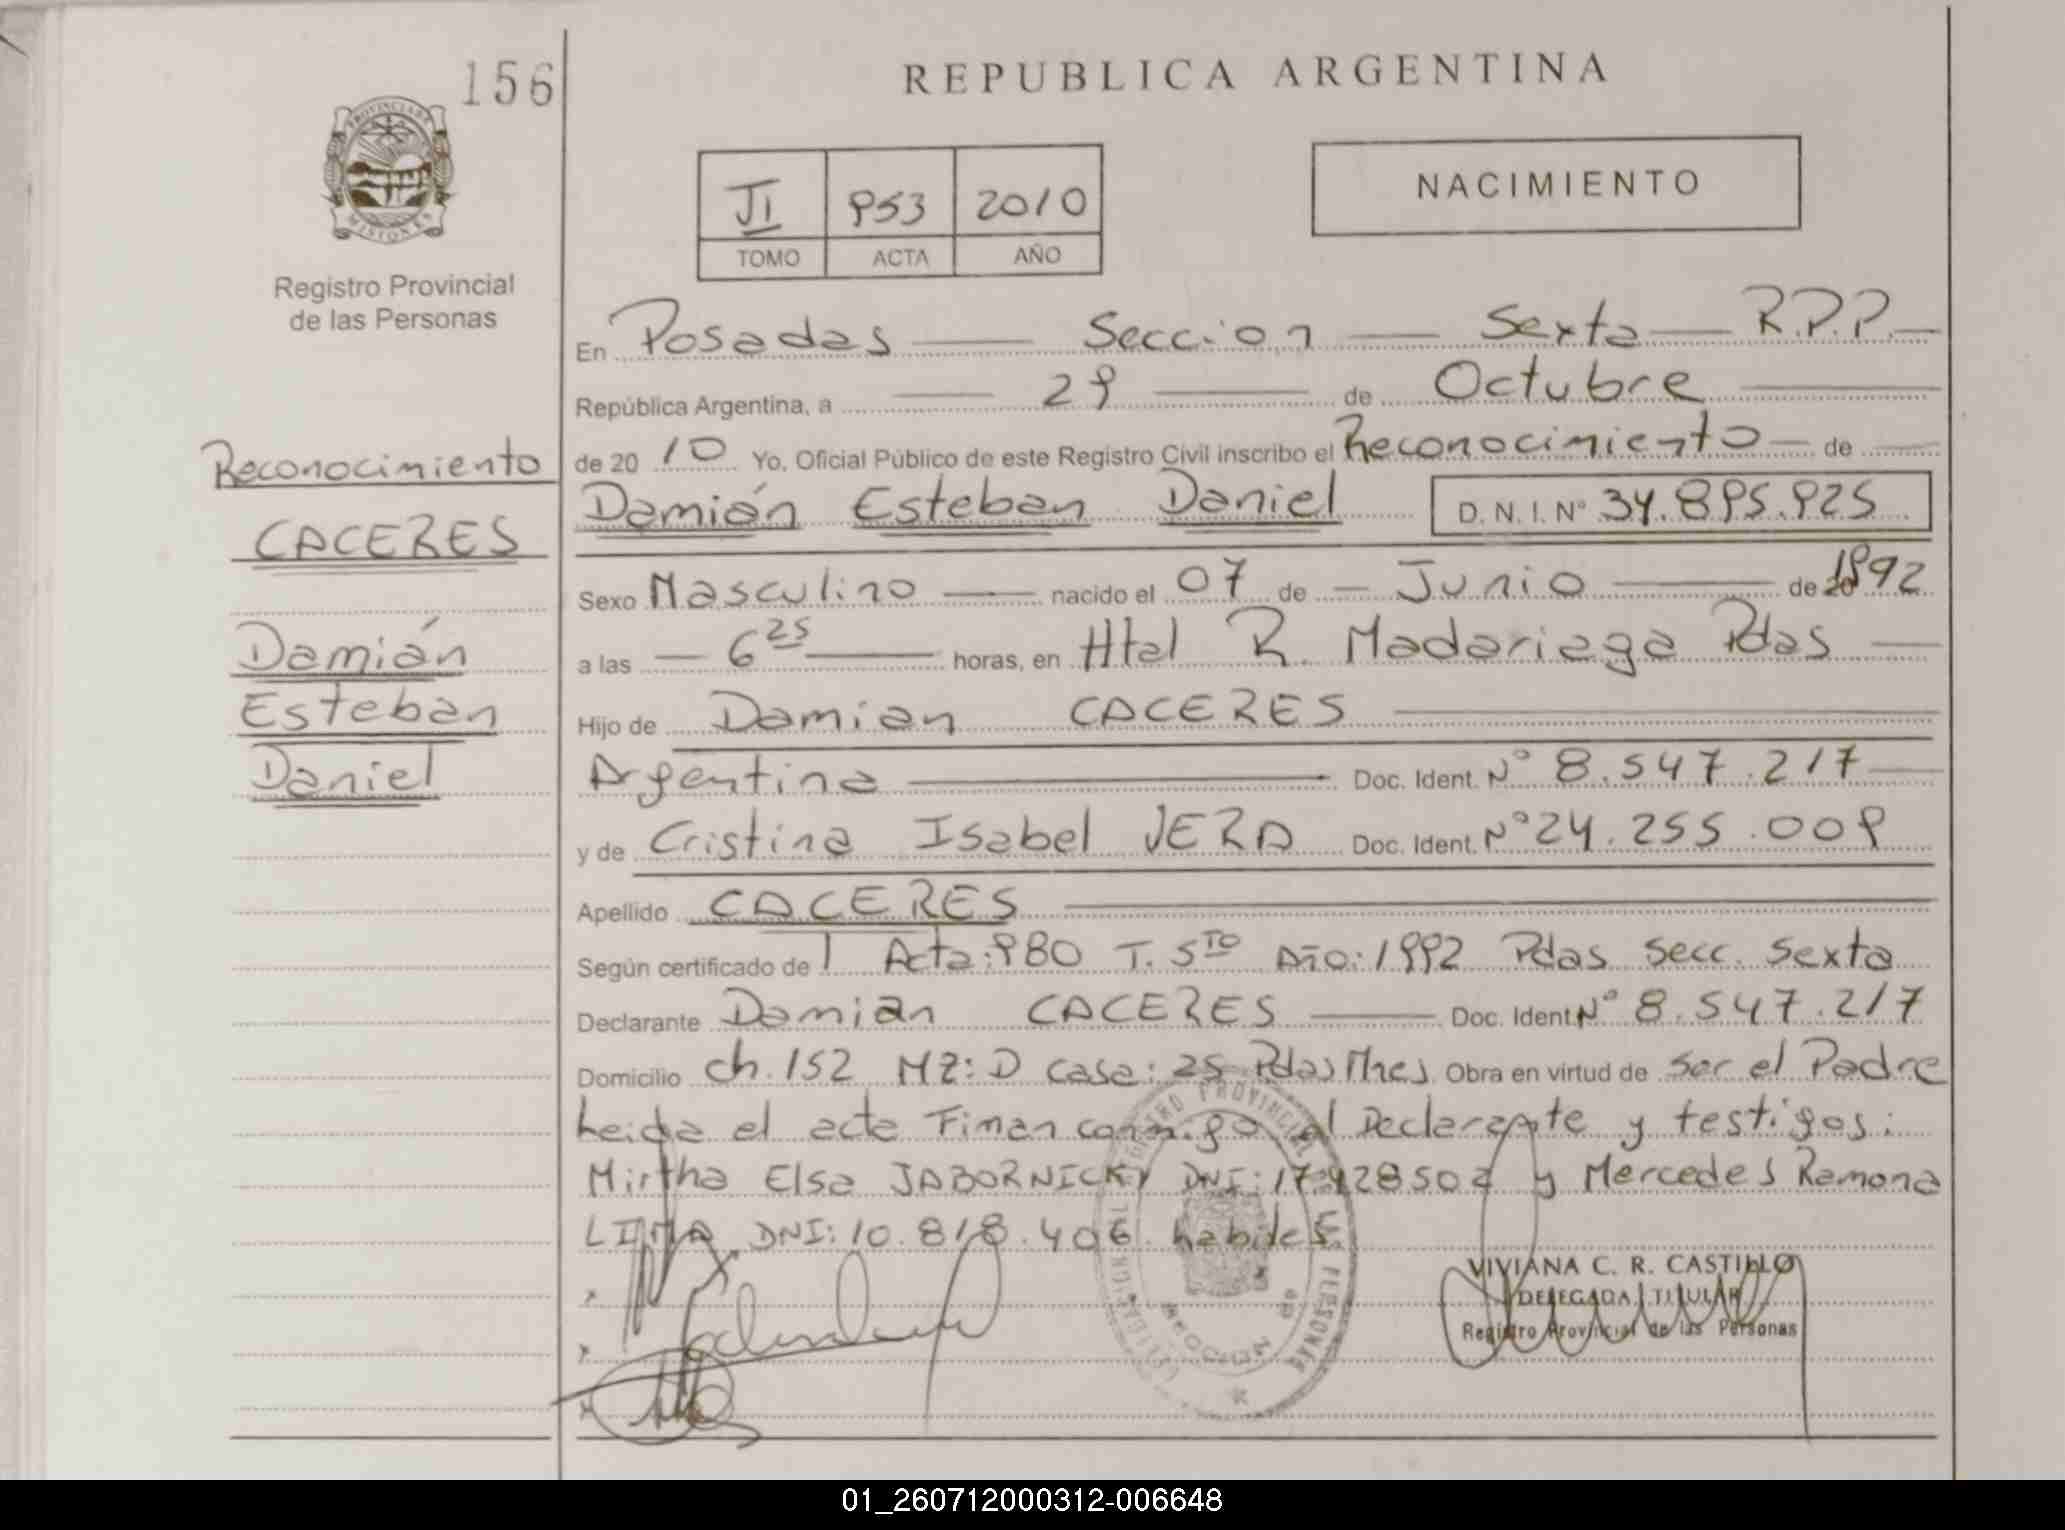 156
REPUBLICA ARGENTINA
PROVINCIA DE MISIONES
Registro Provincial
de las Personas
II 953 2010
TOMO ACTA AÑO
NACIMIENTO
En Posadas Seccion Sexta R.P.P.
República Argentina, a 29 de Octubre
de 2010 Yo, Oficial Público de este Registro Civil inscribo el Reconocimiento de
Damián Esteban Daniel D. N. I. N° 34.895.925
Sexo Masculino nacido el 07 de Junio de 20 1992
a las 6 25 horas, en Htal R. Madariaga Pdas
Hijo de Damian CACERES
Argentina Doc. Ident. N° 8.547.217
y de Cristina Isabel VERA Doc. Ident. N° 24.255.009
Apellido CACERES
Según certificado de Acta: 980 T. 5to Año: 1992 Pdas Secc. Sexta
Declarante Damian CACERES Doc. Ident N° 8.547.217
Domicilio ch. 152 MZ: D casa: 25 Pdas Mnes Obra en virtud de ser el Padre
Leida el acta Firman conmigo el Declarante y testigos:
Mirtha Elsa JABORNICKY DNI: 17.428502 y Mercedes Ramona
LIMA DNI: 10.818.406 habiles.
Reconocimiento
CACERES
Damián
Esteban
Daniel
VIVIANA C. R. CASTILLO
DELEGADA TITULAR
Registro Provincial de las Personas
01_260712000312-006648